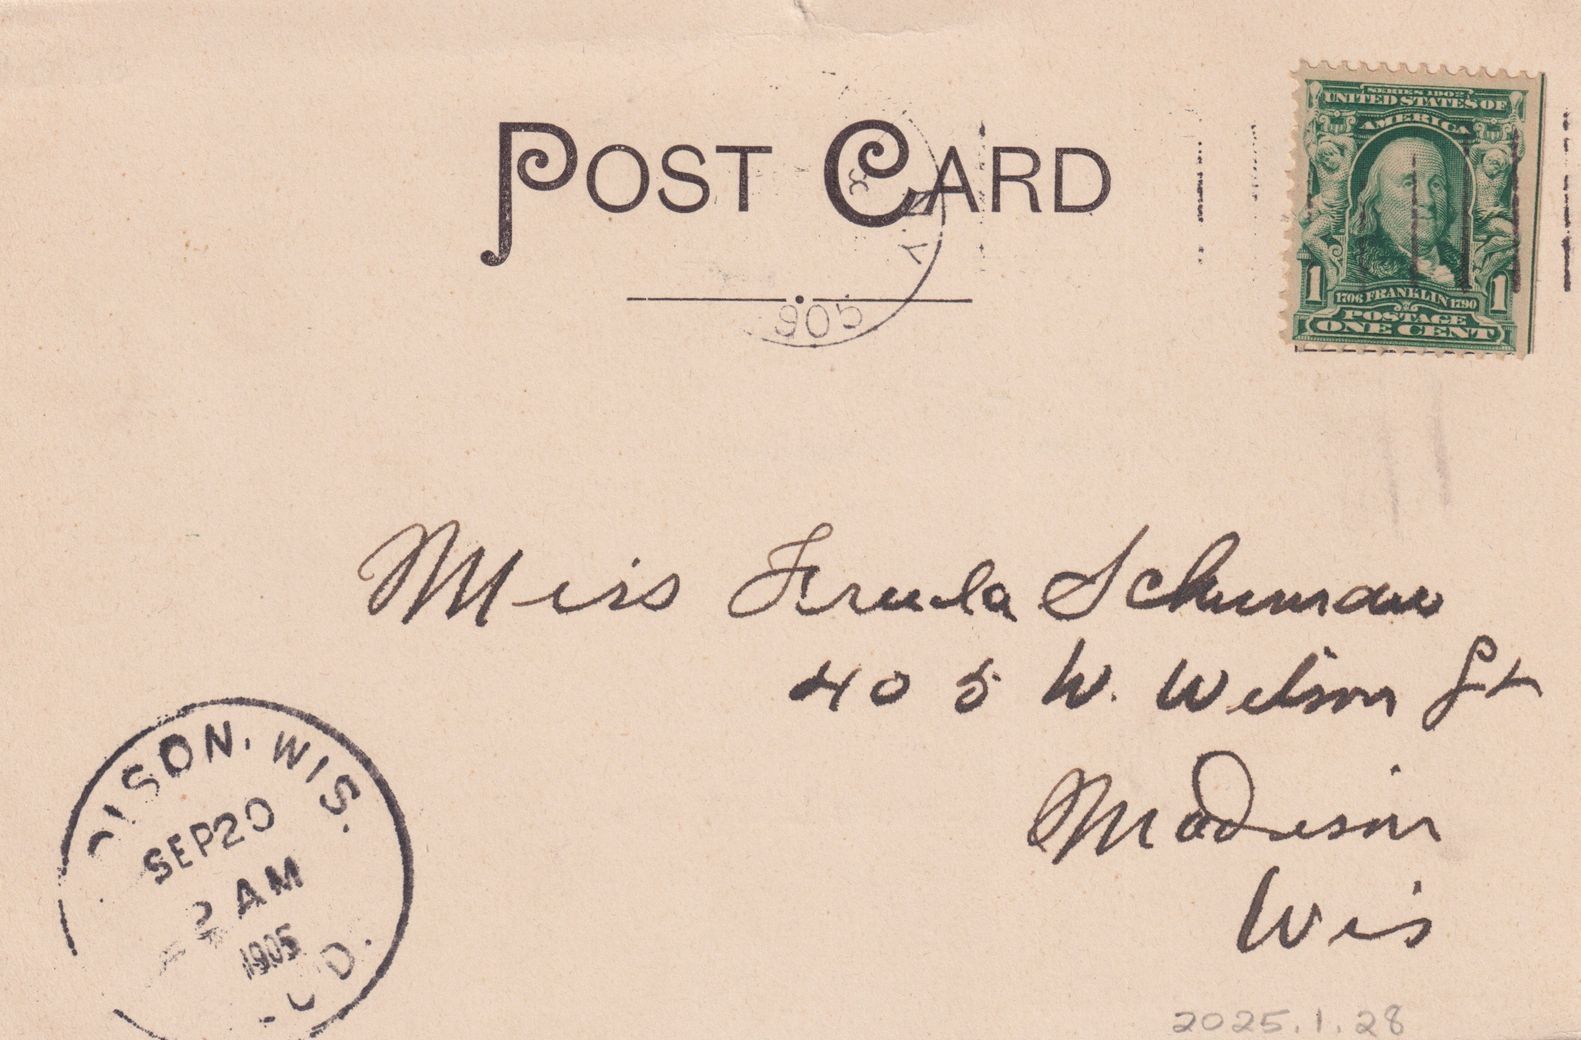 POST CARD
SERIES 1902
UNITED STATES OF
AMERICA
1 1
1706 FRANKLIN 1790
POSTAGE
ONE CENT
N.Y.
905
Miss
405 W. Wilson St
Madison
Wis
DISON, WIS.
SEP 20
2 AM
1905
C'D.
2025.1.28